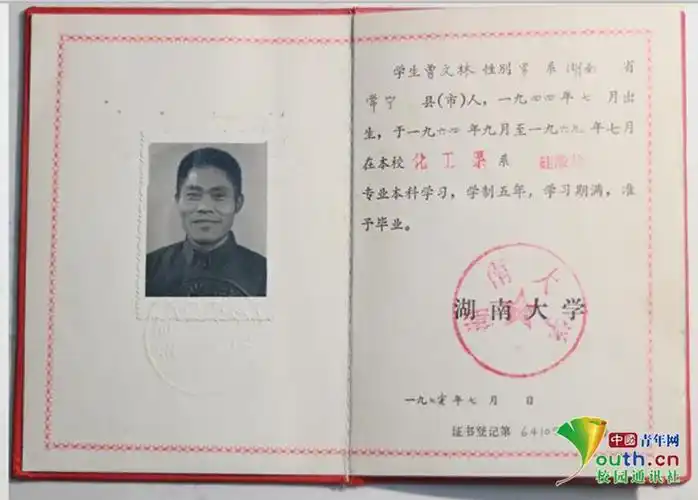 学生曹文林 性别男 系湖南 省
常宁 县(市)人，一九四四年七 月出
生，于一九六四年九月至一九六九年七月
在本校 化工系 系 硅酸盐
专业本科学习，学制五年，学习期满，准
予毕业。
湖南大学
湖南大学
一九七零年七月 日
证书登记第 6410
中國青年网
youth.cn
校园通讯社